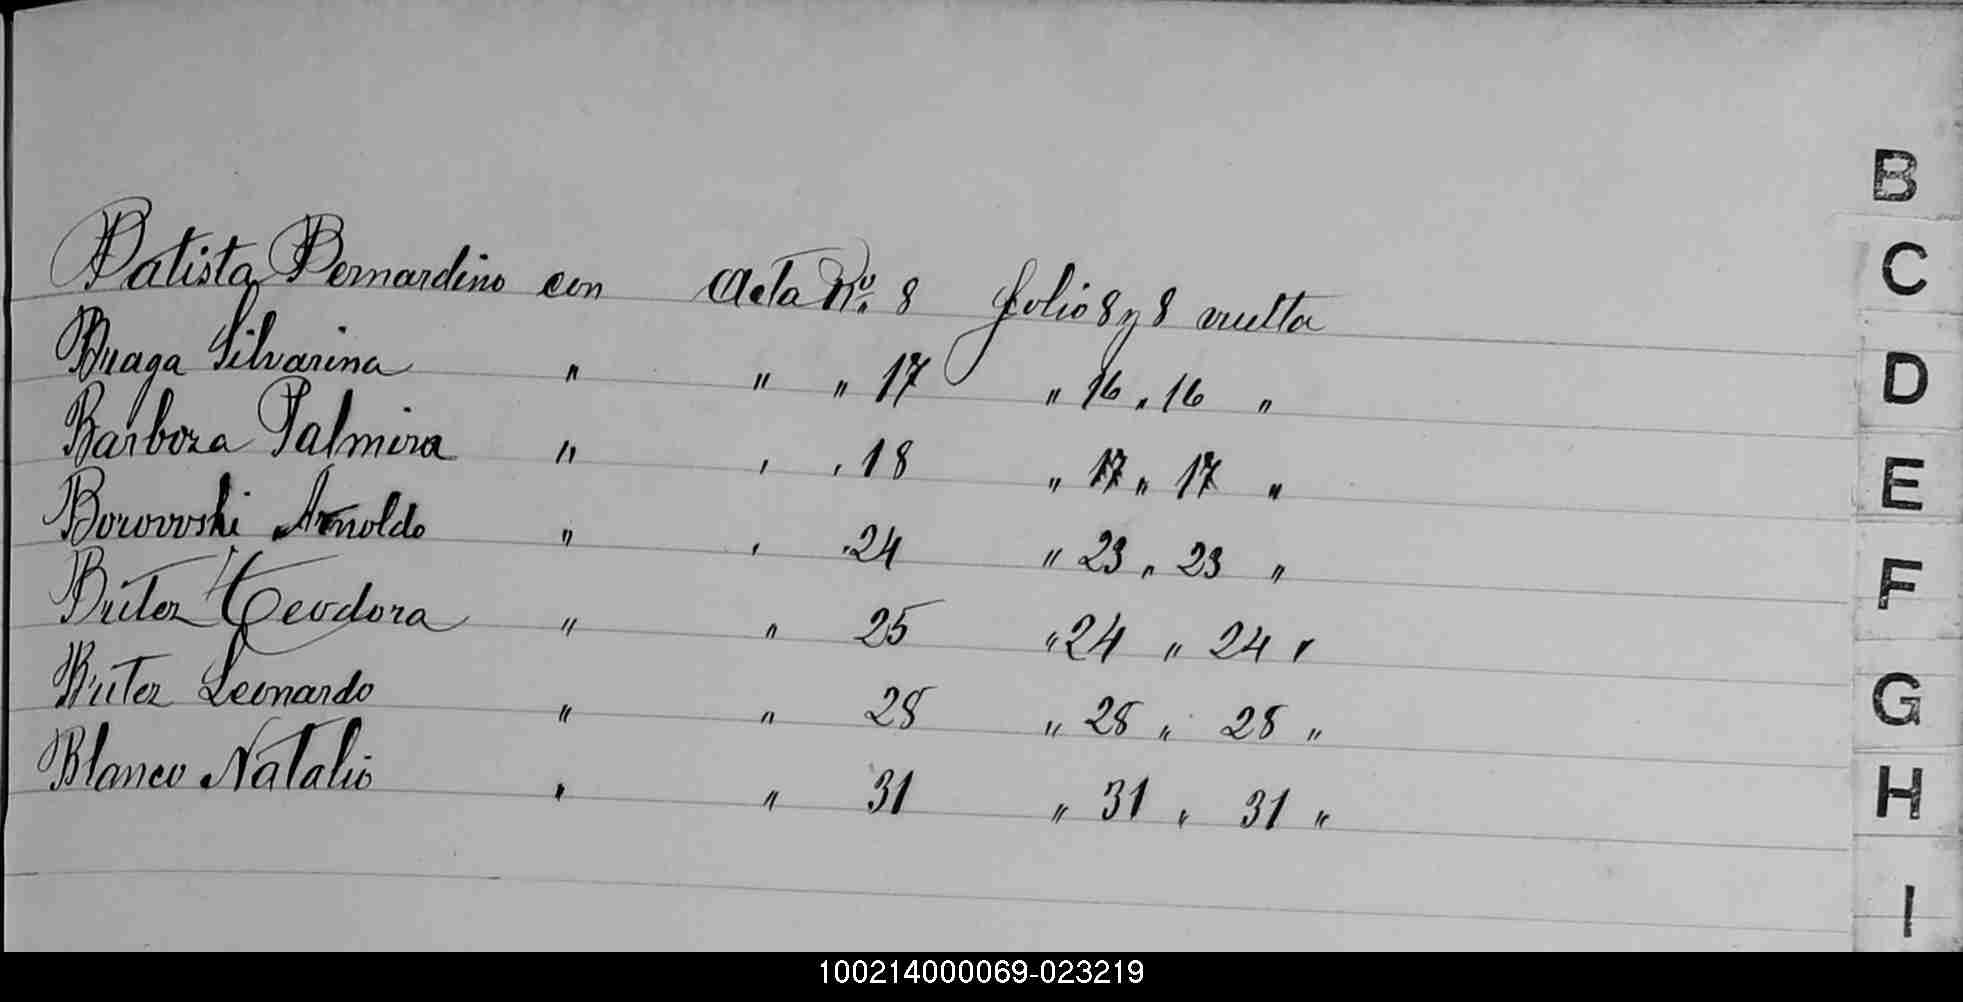 B
Batista Bernardino con Acta Nº. 8 folio 8 y 8 vuelta
C
Braga Silvarina " " " 17 " 16 " 16 "
D
Barboza Palmira " " " 18 " 17 " 17 "
E
Borovoski Arnoldo " " " 24 " 23 " 23 "
F
Britez Teodora " " 25 " 24 " 24 "
G
Britez Leonardo " " 28 " 28 " 28 "
H
Blanco Natalio " " 31 " 31 " 31 "
I
100214000069-023219